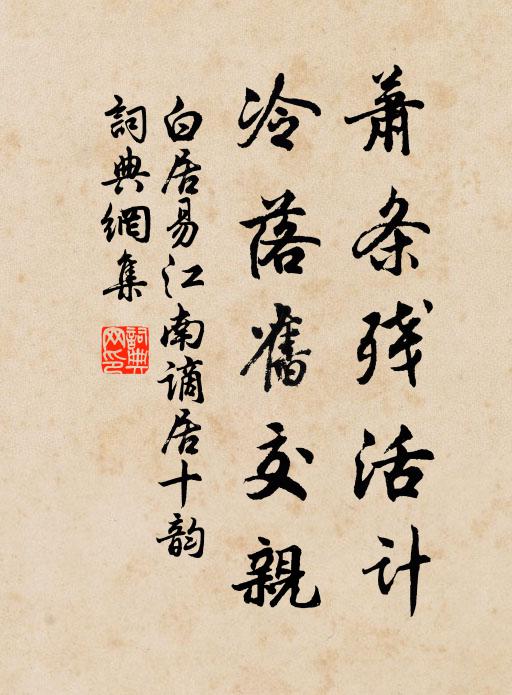 萧条残活计
冷落舊交親
白居易江南谪居十韵
詞典網集
詞典网印